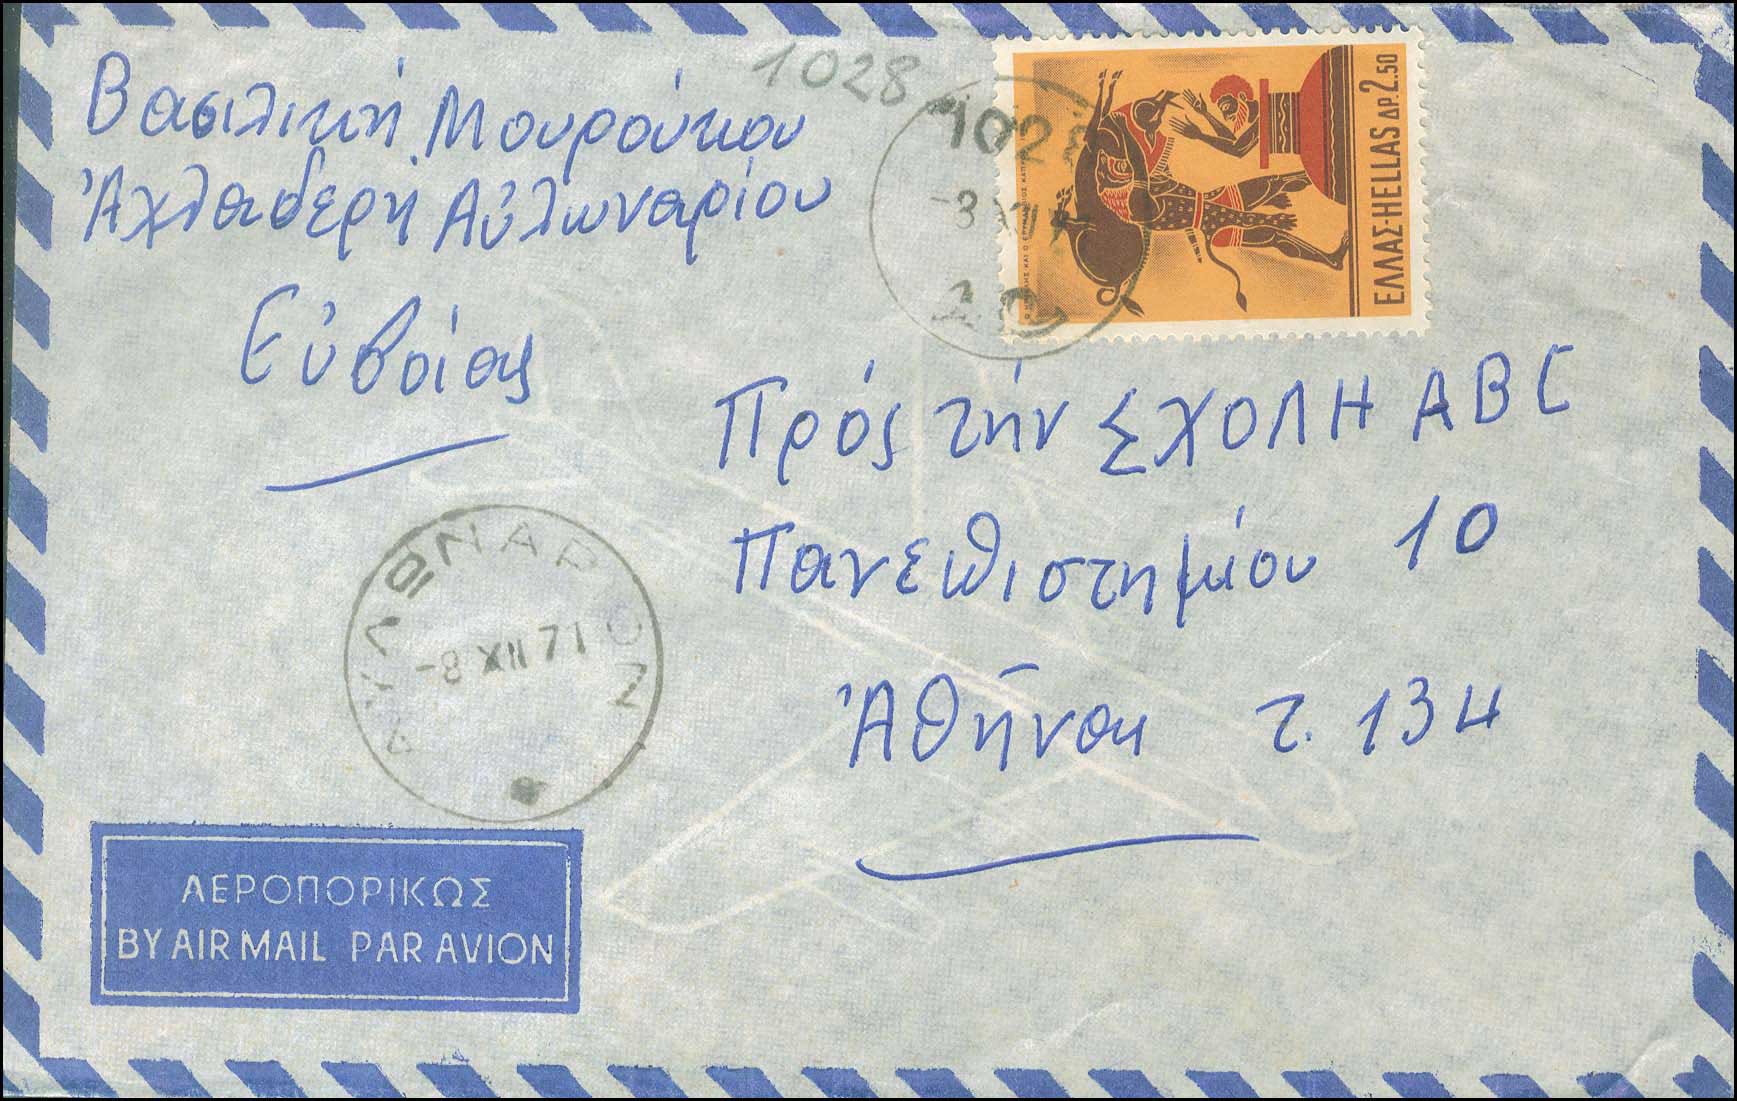 Βασιλική Μουρούκου
Ἀχλαδερή Αὐλωναρίου
Εὐβοίας
1028
1028
ΕΛΛΑΣ-HELLAS ΔΡ. 2.50
Πρός τήν ΣΧΟΛΗ ABC
Πανεπιστημίου 10
Ἀθήναι τ. 134
ΑΥΛΩΝΑΡΙΟΝ
-8 XII 71
ΑΕΡΟΠΟΡΙΚΩΣ
BY AIR MAIL PAR AVION